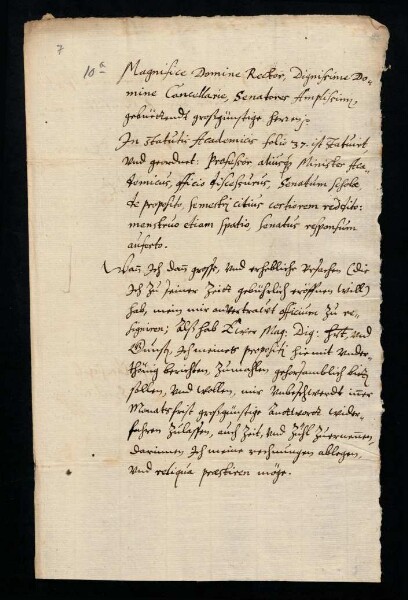 7
10a
Magnifice Domine Rector, Dignissime Do-
mine Cancellarie, Senatores Amplissimi,
großgünstige Herren.
In Statutis Academicis folio 37. ist statuirt,
Und geordnet: Professor aliusq Minister Aca-
demicus, officio discessurus, Senatum Schola
te proposito, semestri citius certiorem reddito:
menstruo etiam spatio, Senatus responsum
auferto.
Wan Ich dan grosse, Und erhebliche Ursachen (die
Ich zu seiner Zeitt gebührlich eröffnen will)
hab, mein mir anvertrawt officium zu re-
signiren; Alß hab Ewer Mag: Dig: Und
Gunst, Ich meines propositj hiemit Under-
thönig berichten, zumahlen gehorsamblich bitten
sollen, Und wollen, mir Unbeschwerdt inner
Monatsfrist großgünstige Andtwordt wider-
fahren zulassen, auch Zeit, Und Zühl zuernennen,
darinnen Ich meine rechnungen ablegen,
Und reliqua præstiren möge.